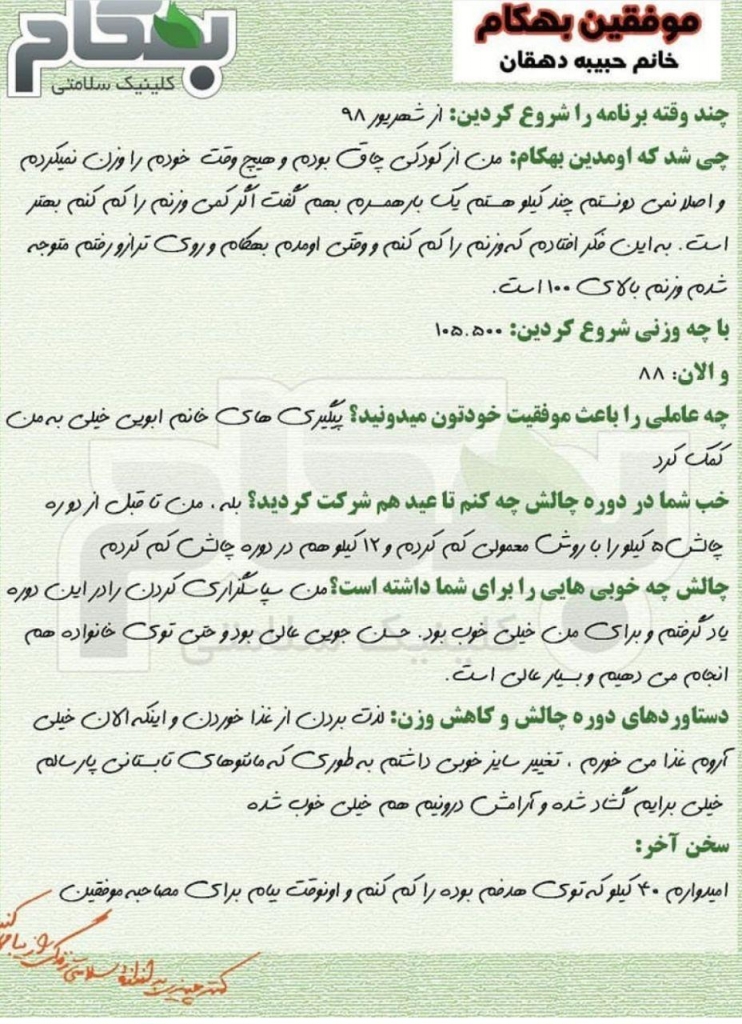 بهکام
کلینیک سلامتی
موفقین بهکام
خانم حبیبه دهقان
چند وقته برنامه را شروع کردین: از شهریور ۹۸
چی شد که اومدین بهکام: من از کودکی چاق بودم و هیچ وقت خودم را وزن نمیکردم
و اصلا نمی دونستم چند کیلو هستم یک بار همسرم بهم گفت اگر کمی وزنم را کم کنم بهتر
است. به این فکر افتادم که وزنم را کم کنم و وقتی اومدم بهکام و روی ترازو رفتم متوجه
شدم وزنم بالای ۱۰۰ است.
با چه وزنی شروع کردین: ۱۰۵.۵۰۰
و الان: ۸۸
چه عاملی را باعث موفقیت خودتون میدونید؟ پیگیری های خانم ابویی خیلی به من
کمک کرد
خب شما در دوره چالش چه کنم تا عید هم شرکت کردید؟ بله، من تا قبل از دوره
چالش ۵ کیلو را با روش معمولی کم کردم و ۱۲ کیلو هم در دوره چالش کم کردم
چالش چه خوبی هایی را برای شما داشته است؟ من سپاسگزاری کردن را در این دوره
یاد گرفتم و برای من خیلی خوب بود. حسن جویی عالی بود و حتی توی خانواده هم
انجام می دهیم و بسیار عالی است.
دستاوردهای دوره چالش و کاهش وزن: لذت بردن از غذا خوردن و اینکه الان خیلی
آروم غذا می خورم ، تغییر سایز خوبی داشتم به طوری که مانتوهای تابستانی پارسالم
خیلی برایم گشاد شده و آرامش درونیم هم خیلی خوب شده
سخن آخر:
امیدوارم ۴۰ کیلو که توی هدفم بوده را کم کنم و اونوقت بیام برای مصاحبه موفقین